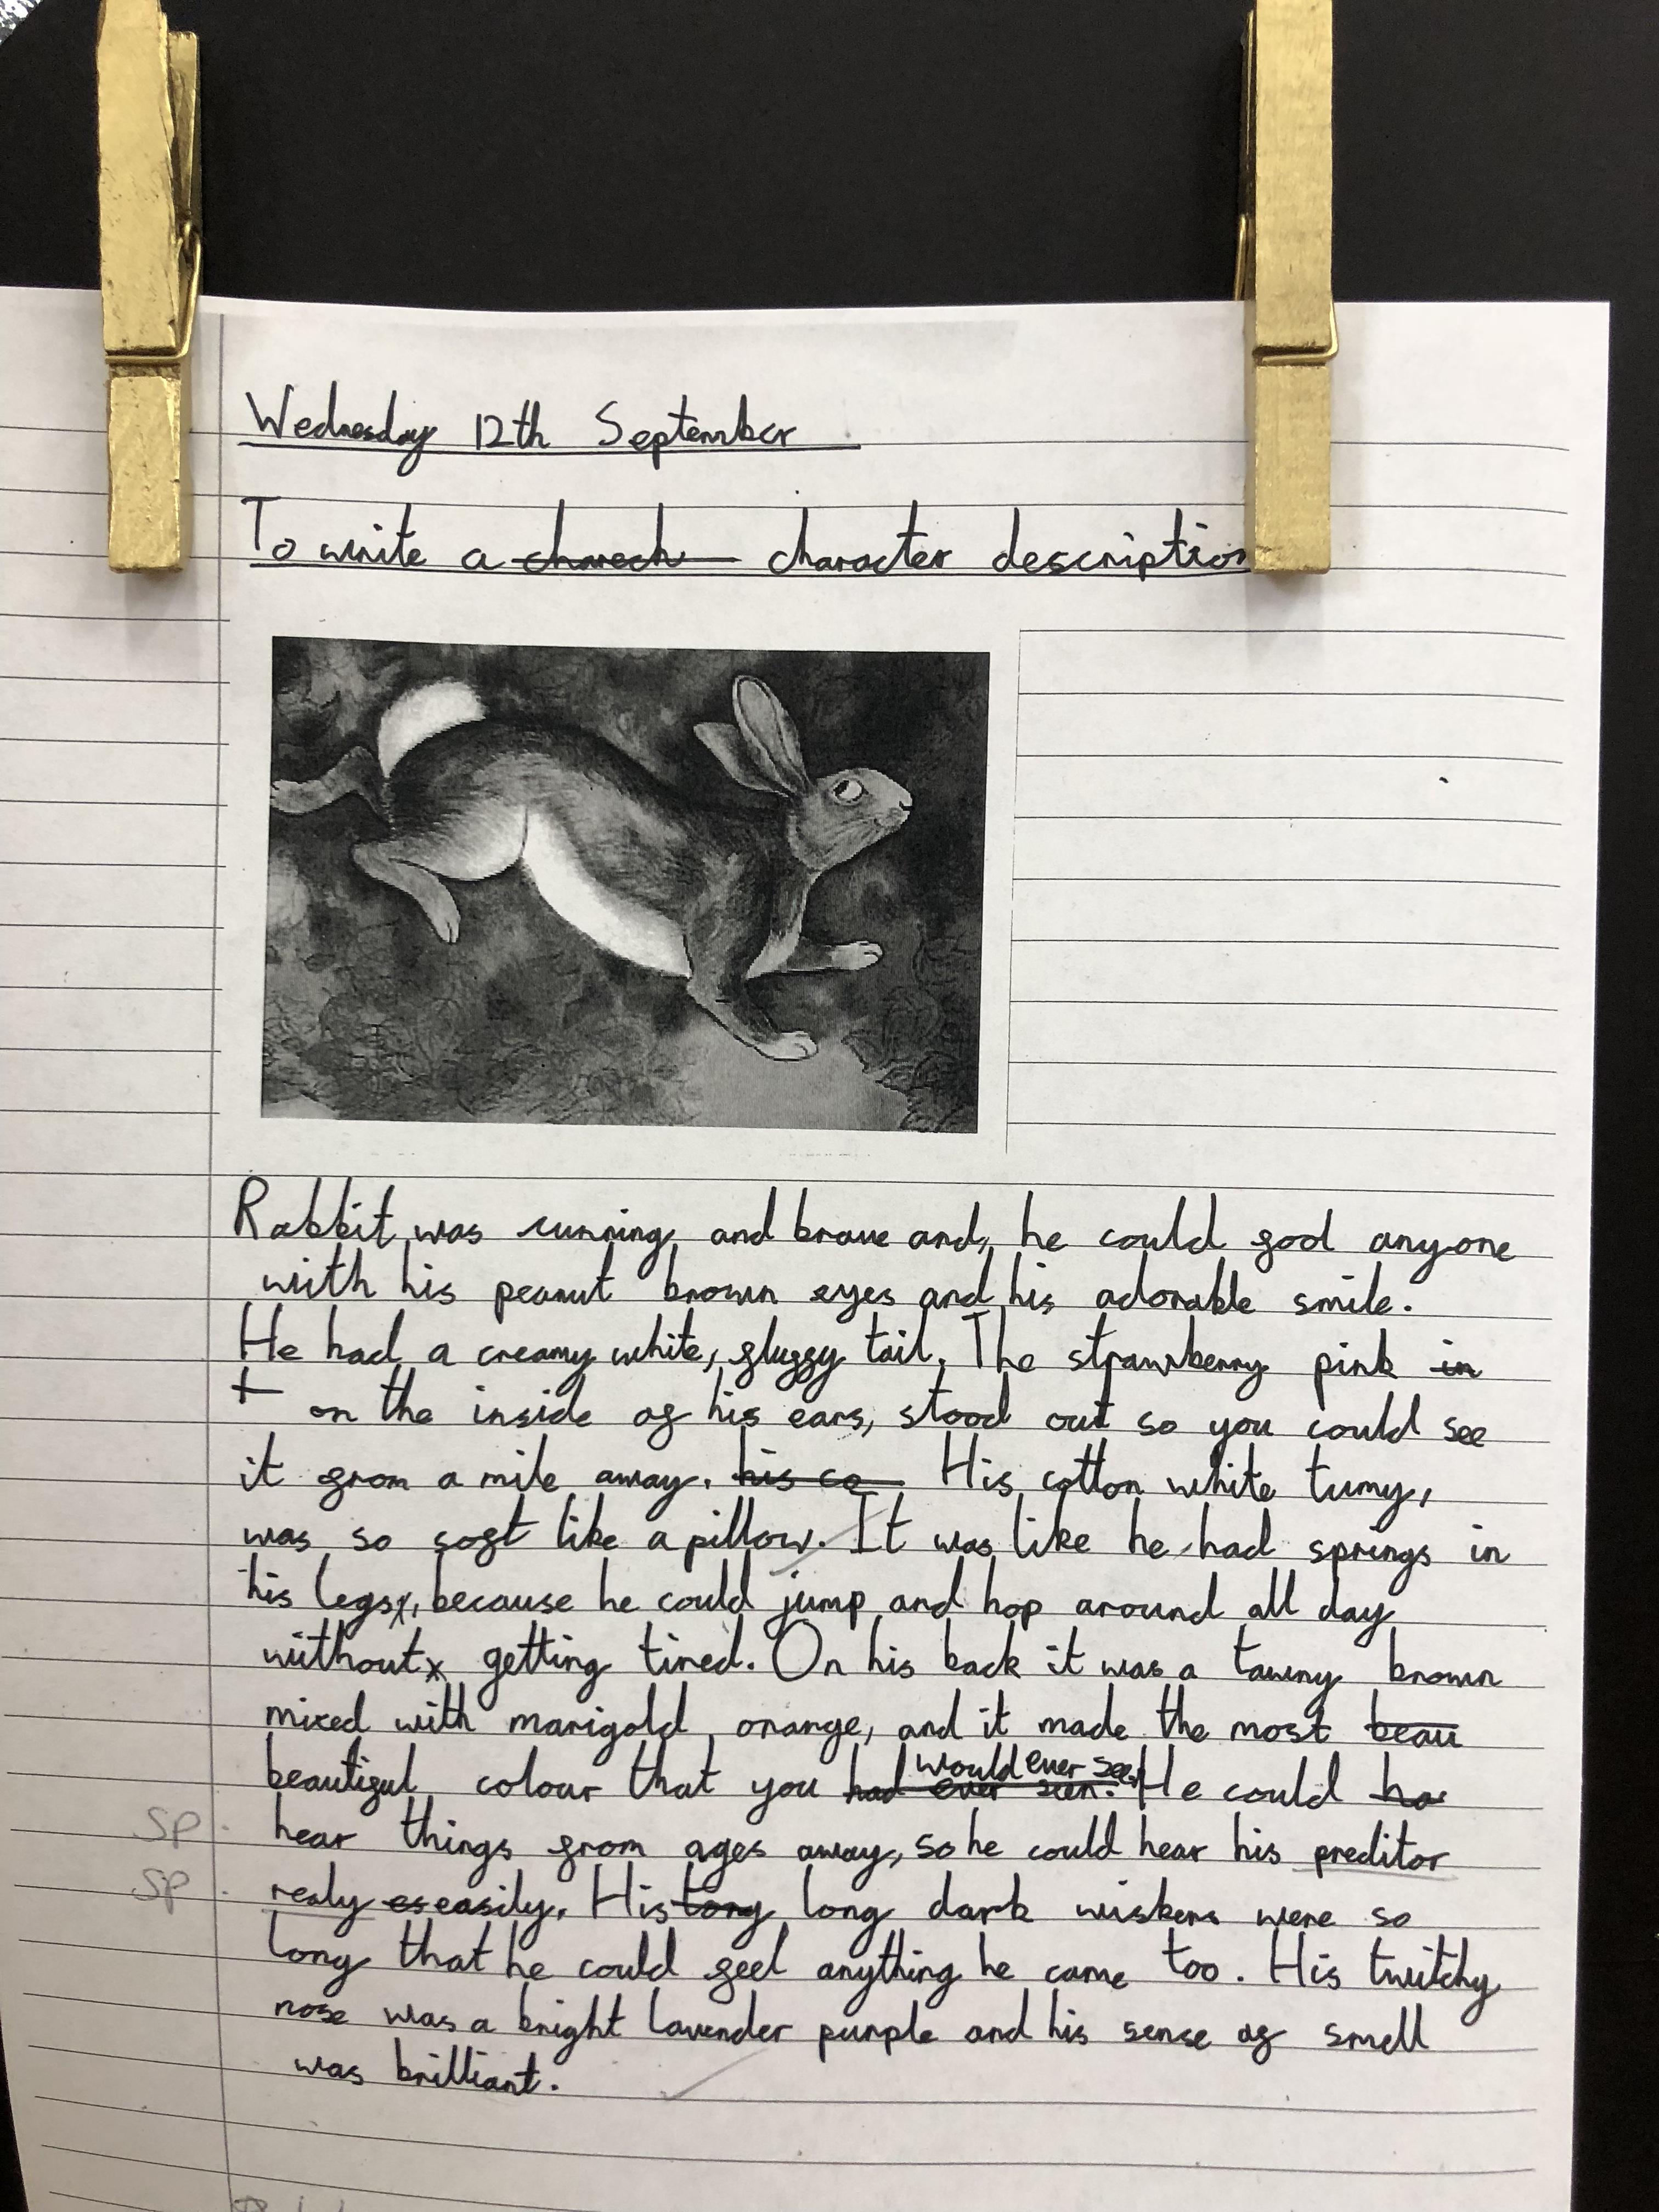 Wednesday 12th September
To write a charech character description
Rabbit was cunning and brave and, he could fool anyone
with his peanut brown eyes and his adorable smile.
He had a creamy white, fluffy tail. The strawberry pink in
t on the inside of his ears, stood out so you could see
it from a mile away. his co His cotton white tumy,
was so soft like a pillow. It was like he had springs in
his legs, because he could jump and hop around all day
without getting tired. On his back it was a tawny brown
mixed with marigold orange, and it made the most beau
beautiful colour that you had ever seen. would ever see. He could ha
SP hear things from ages away, so he could hear his preditor
SP realy es easily. His long dark wiskers were so
long that he could feel anything he came too. His twitchy
nose was a bright lavender purple and his sense of smell
was brilliant.